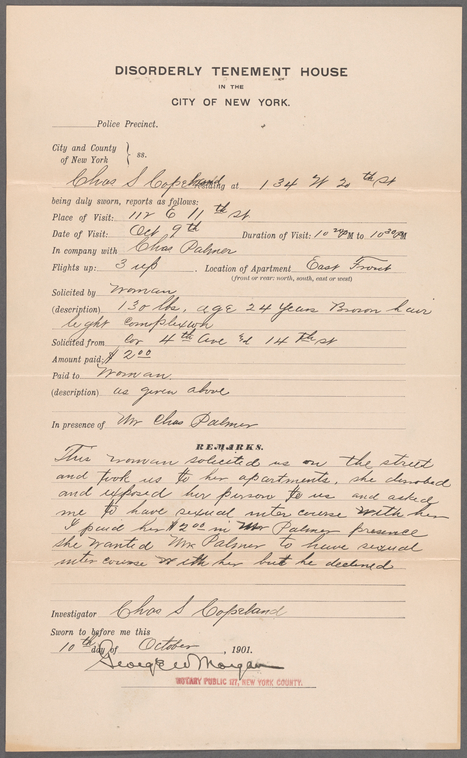 DISORDERLY TENEMENT HOUSE
IN THE
CITY OF NEW YORK.
Police Precinct.
City and County
of New York } ss.
Chas S Copeland residing at 134 W 20th St
being duly sworn, reports as follows:
Place of Visit: 112 E 11th St
Date of Visit: Oct 9th Duration of Visit: 10 20 PM to 10 30 PM
In company with Chas Palmer
Flights up: 3 up Location of Apartment East Front
(front or rear: north, south, east or west)
Solicited by Woman
(description) 130 lbs, age 24 years Brown hair
light complexion
Solicited from cor 4th Ave & 14th St
Amount paid: $2.00
Paid to Woman
(description) as given above
In presence of Mr Chas Palmer
REMARKS.
This woman solicited us on the street
and took us to her apartments. she disrobed
and exposed her person to us and asked
me to have sexual inter course with her
I paid her $2.00 in Mr Palmer presence
she wanted Mr Palmer to have sexual
inter course with her but he declined
Investigator Chas S Copeland
Sworn to before me this
10th day of October, 1901.
George W Morgan
NOTARY PUBLIC NEW YORK COUNTY.